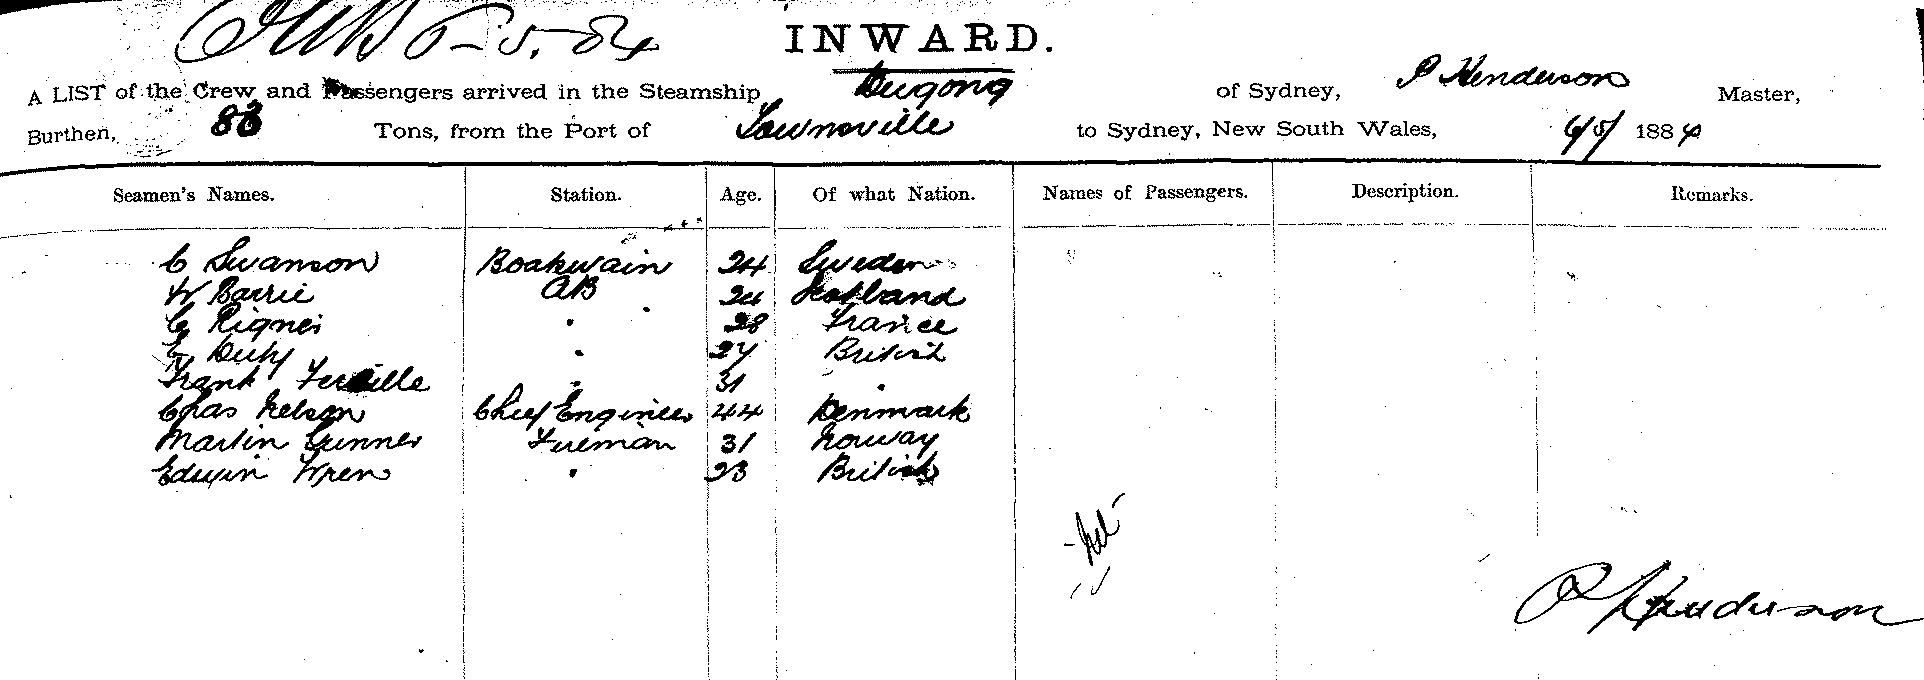 6-5-84
INWARD.
A LIST of the Crew and Passengers arrived in the Steamship Dugong of Sydney, P Henderson Master,
Burthen, 83 Tons, from the Port of Townsville to Sydney, New South Wales, 6/5/ 1884
Seamen's Names. Station. Age. Of what Nation. Names of Passengers. Description. Remarks.
C Swanson Boatswain 24 Sweden
W Barrie AB 24 Scotland
C 28 France
27 British
Frank 31
Chas Nelson Chief Engineer 44 Denmark
Martin Gunner Fireman 31 Norway
Edwin Wren 23 British
- Nil -
P Henderson